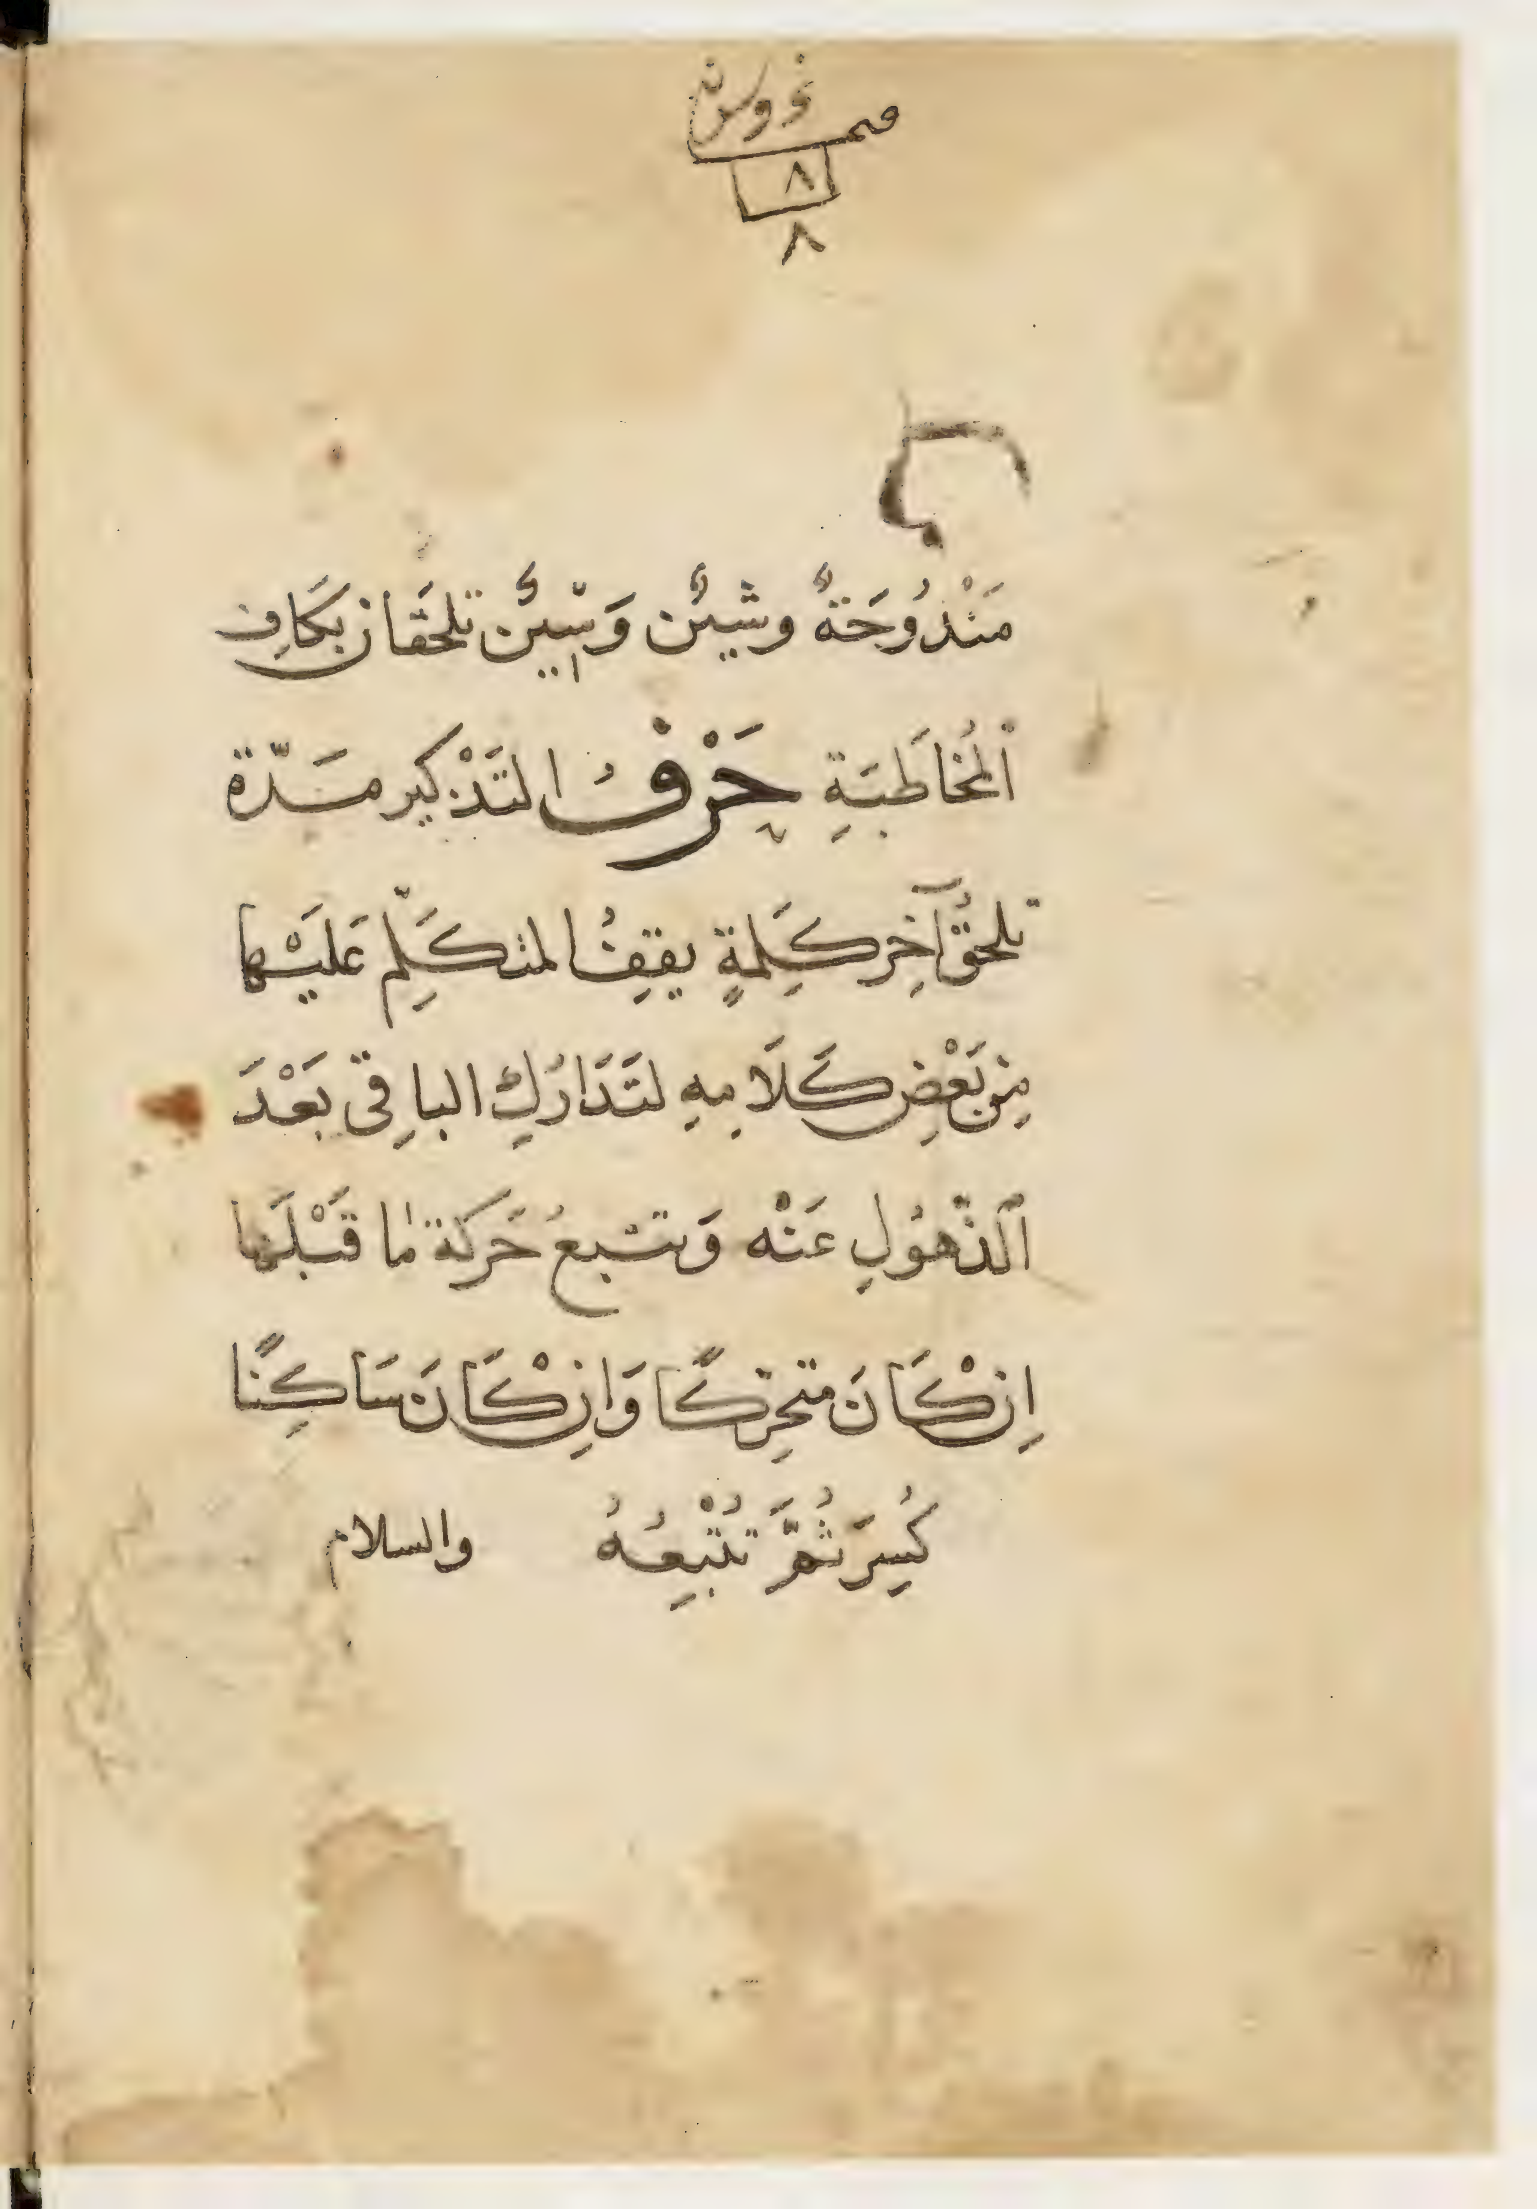 ٨
٨
مَنْدُوحَةٌ وشينٌ وَسّينٌ تلحَقان بكَافِ
ٱلمُخاطَبَةِ حَرْفُ التَذْكير مَدّة
تلحقُ آخِر كَلِمةٍ يقفُ المتكَلِّم عَلَيْها
مِن بَعْضِ كَلَامِهِ لتَدَارُكِ الباقِى بَعْدَ
ٱلذّهُولِ عَنْه وَتتبعُ حَركة ما قَبْلَها
اِن كْانَ متحرِكًا وَاِن كْانَ سَاكِنًا
كُسِرَ ثُمَّ تُتْبِعُهُ والسلام